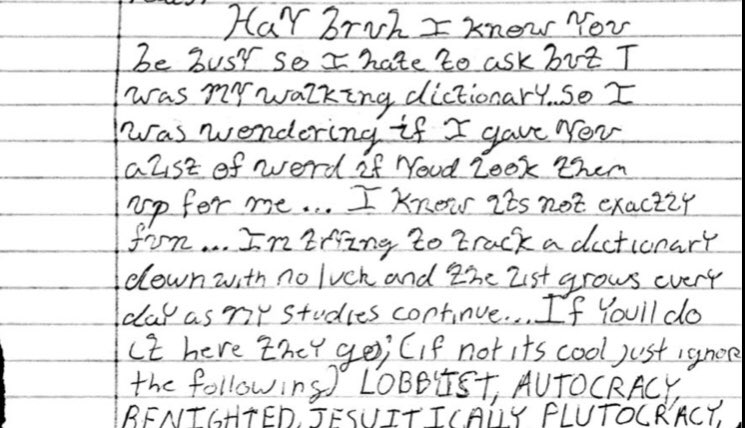 Hay Bruh I know you
be busy so I hate to ask but I
was my walking dictionary..so I
was wondering if I gave you
a list of word if youd look them
up for me... I know its not exactly
fun... Im trying to track a dictionary
down with no luck and the list grows every
day as my studies continue... If youll do
it here they go; (if not its cool just ignore
the following) LOBBYIST, AUTOCRACY,
BENIGHTED, JESUITICALLY PLUTOCRACY,